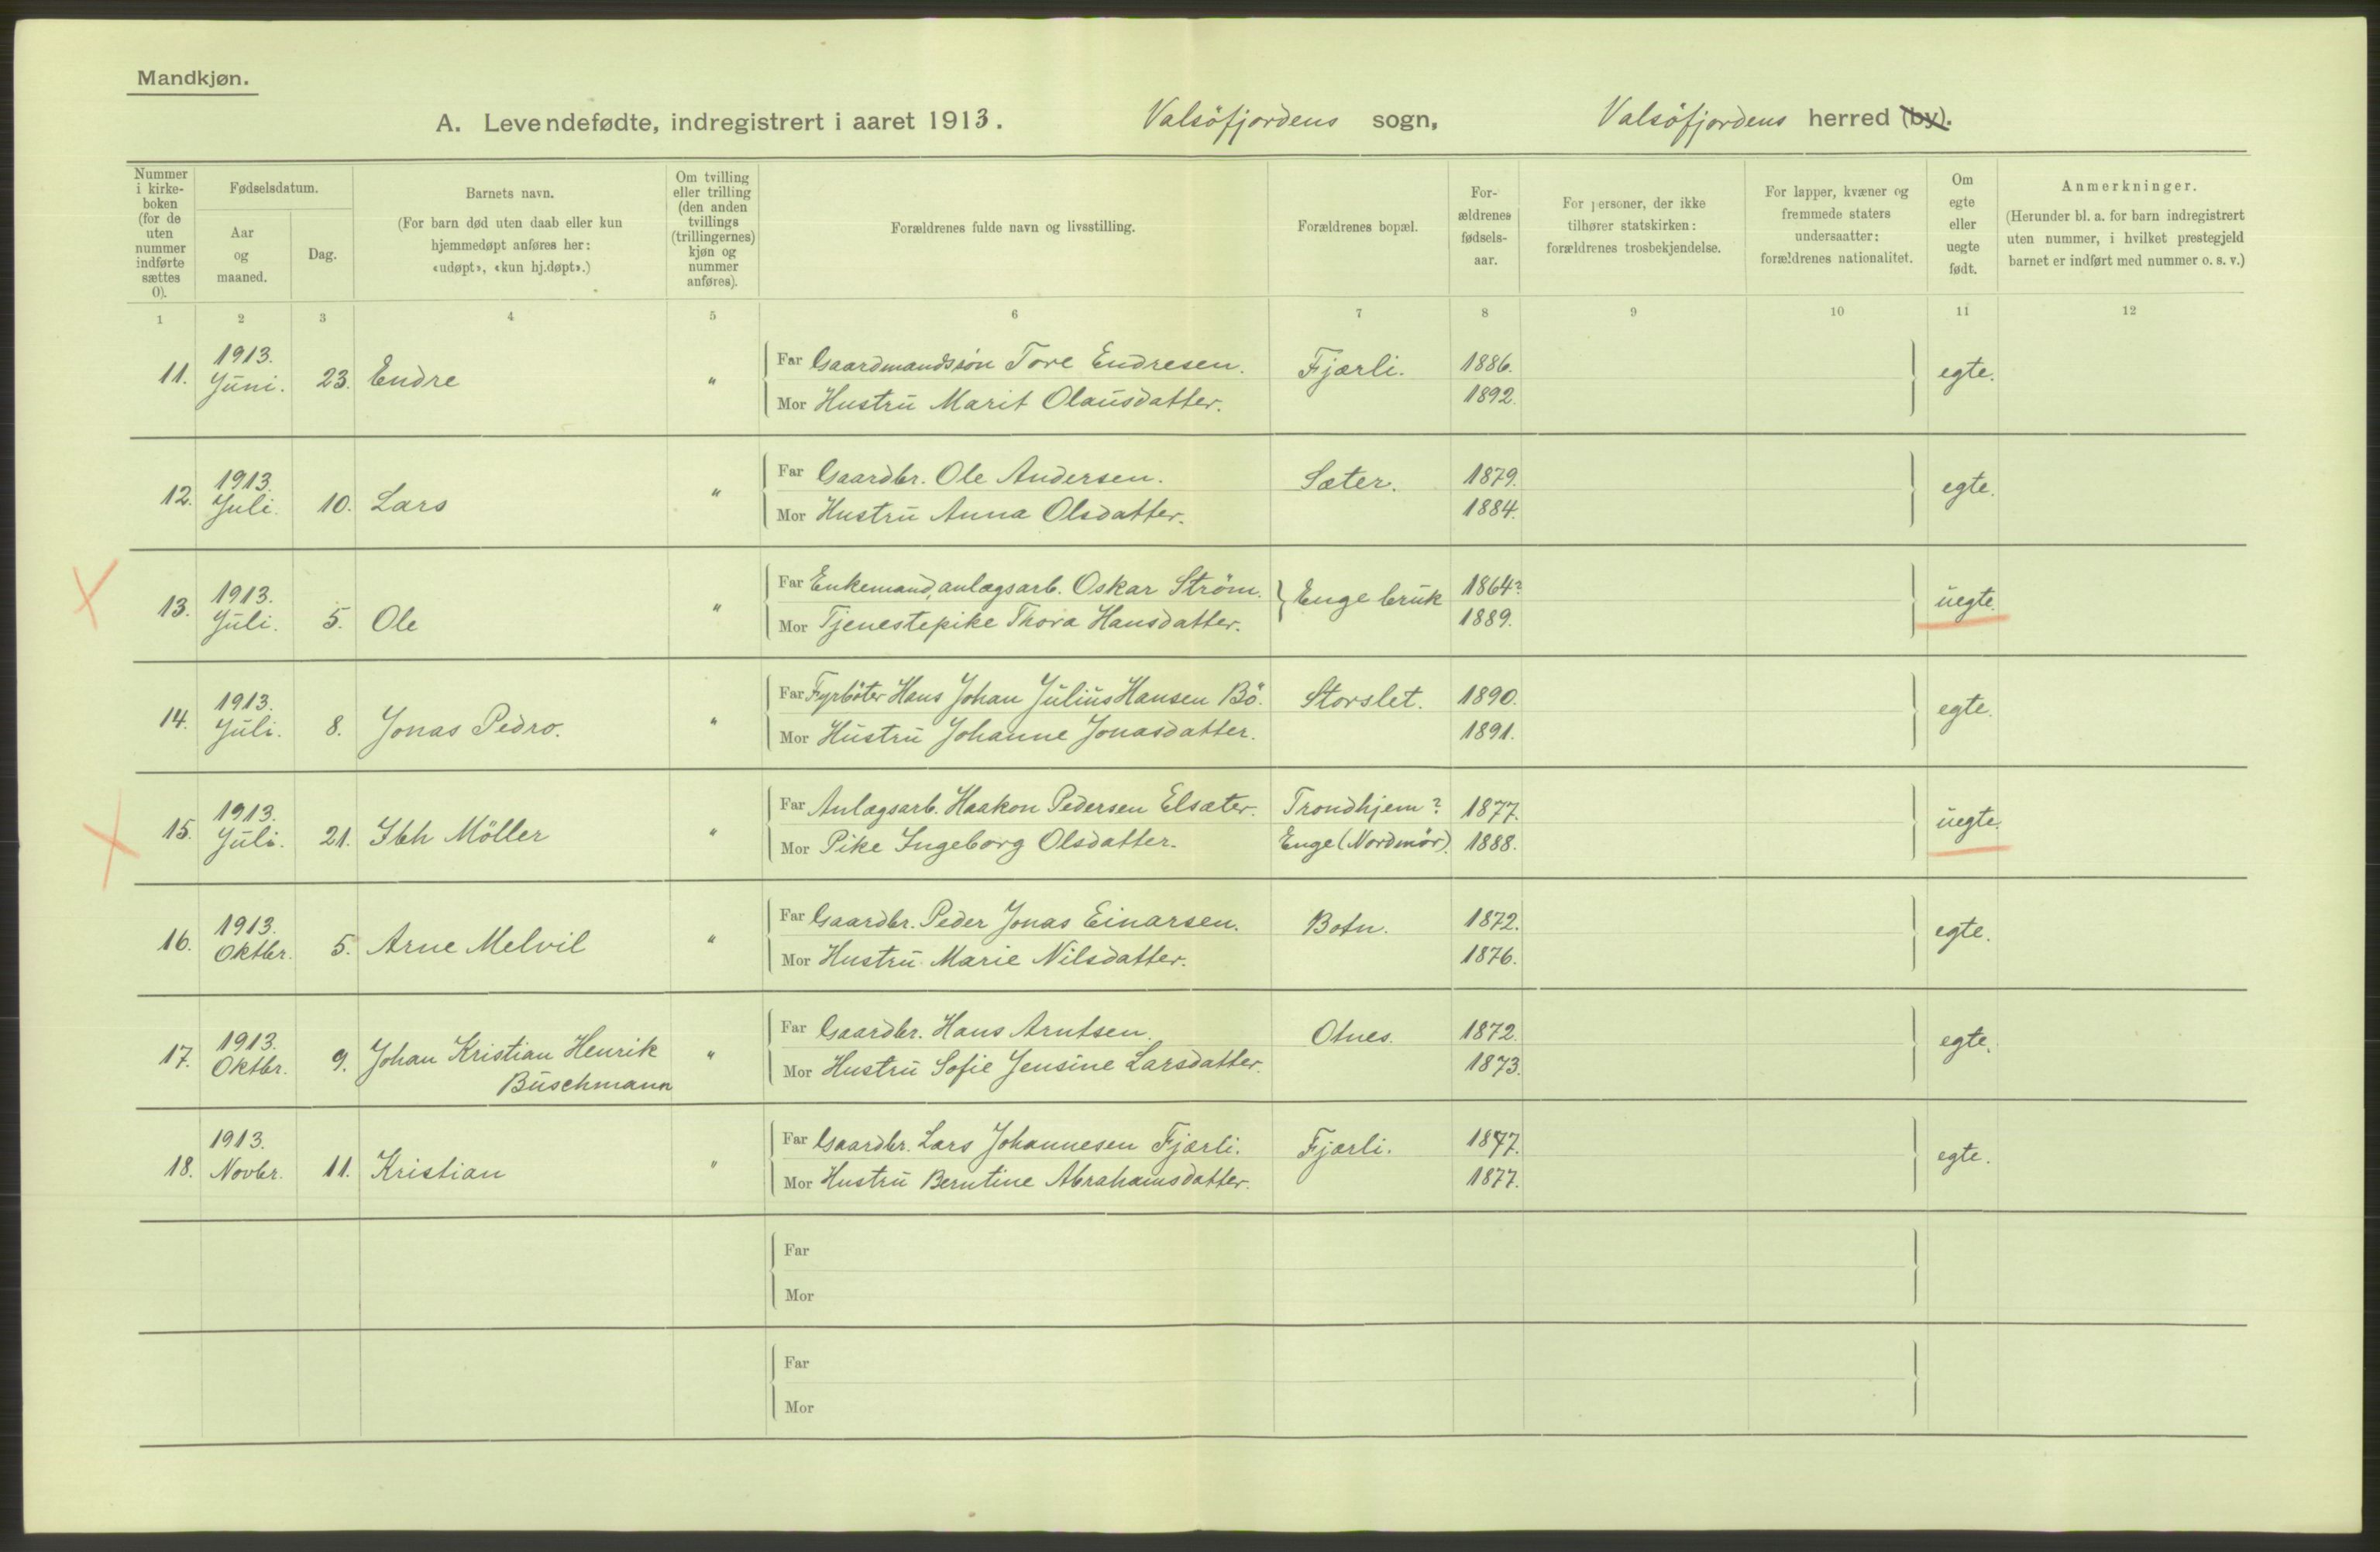 Mandkjøn.
A. Levendefødte, indregistrert i aaret 1913. Valsöfjordens sogn, Valsöfjordens herred (by).
Nummer i kirkeboken (for de uten nummer indførte sættes 0).
Fødselsdatum.
Aar og maaned.
Dag.
Barnets navn.
(For barn død uten daab eller kun hjemmedøpt anføres her: «udøpt», «kun hj.døpt».)
Om tvilling eller trilling (den anden tvillings (trillingernes) kjøn og nummer anføres).
Forældrenes fulde navn og livsstilling.
Forældrenes bopæl.
Forældrenes fødselsaar.
For personer, der ikke tilhører statskirken: forældrenes trosbekjendelse.
For lapper, kvæner og fremmede staters undersaatter: forældrenes nationalitet.
Om egte eller uegte født.
Anmerkninger.
(Herunder bl. a. for barn indregistrert uten nummer, i hvilket prestegjeld barnet er indført med nummer o. s. v.)
1 2 3 4 5 6 7 8 9 10 11 12
11. 1913. Juni. 23. Endre " Far Gaardmandssön Tore Endresen. Fjærli. 1886. egte.
Mor Hustru Marit Olausdatter. 1892.
12. 1913. Juli. 10. Lars " Far Gaardbr. Ole Andersen. Sæter. 1879. egte.
Mor Hustru Anna Olsdatter. 1884.
13. 1913. Juli. 5. Ole " Far Enkemand, anlægsarb. Oskar Ström. Enge bruk 1864? uegte.
Mor Tjenestepike Thora Hansdatter. 1889.
14. 1913. Juli. 8. Jonas Pedro. " Far Fyrböter Hans Johan Julius Hansen Bö. Storslet. 1890. egte.
Mor Hustru Johanne Jonasdatter. 1891.
15. 1913. Juli. 21. Ibh Möller " Far Anlægsarb. Haakon Pedersen Elsæter. Trondhjem? 1877. uegte.
Mor Pike Ingeborg Olsdatter. Enge (Nordmör). 1888.
16. 1913. Oktbr. 5. Arne Melvil " Far Gaardbr. Peder Jonas Einarsen. Botn. 1872. egte.
Mor Hustru Marie Nilsdatter. 1876.
17. 1913. Oktbr. 9. Johan Kristian Henrik Buschmann " Far Gaardbr. Hans Arntsen. Otnes. 1872. egte.
Mor Hustru Sofie Jensine Larsdatter. 1873.
18. 1913. Novbr. 11. Kristian " Far Gaardbr. Lars Johannesen Fjærli. Fjærli. 1877. egte.
Mor Hustru Berntine Abrahamsdatter. 1877.
Far
Mor
Far
Mor